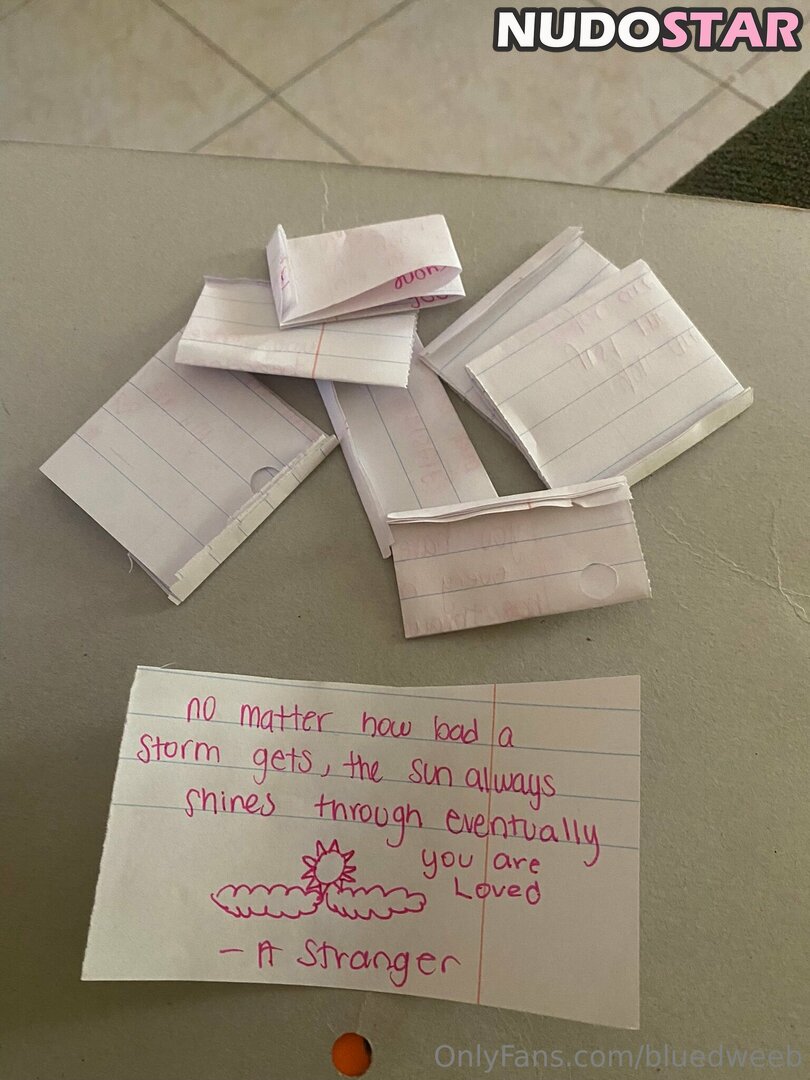 NUDOSTAR
no matter how bad a
storm gets, the sun always
shines through eventually
you are
Loved
- A Stranger
OnlyFans.com/bluedweeb